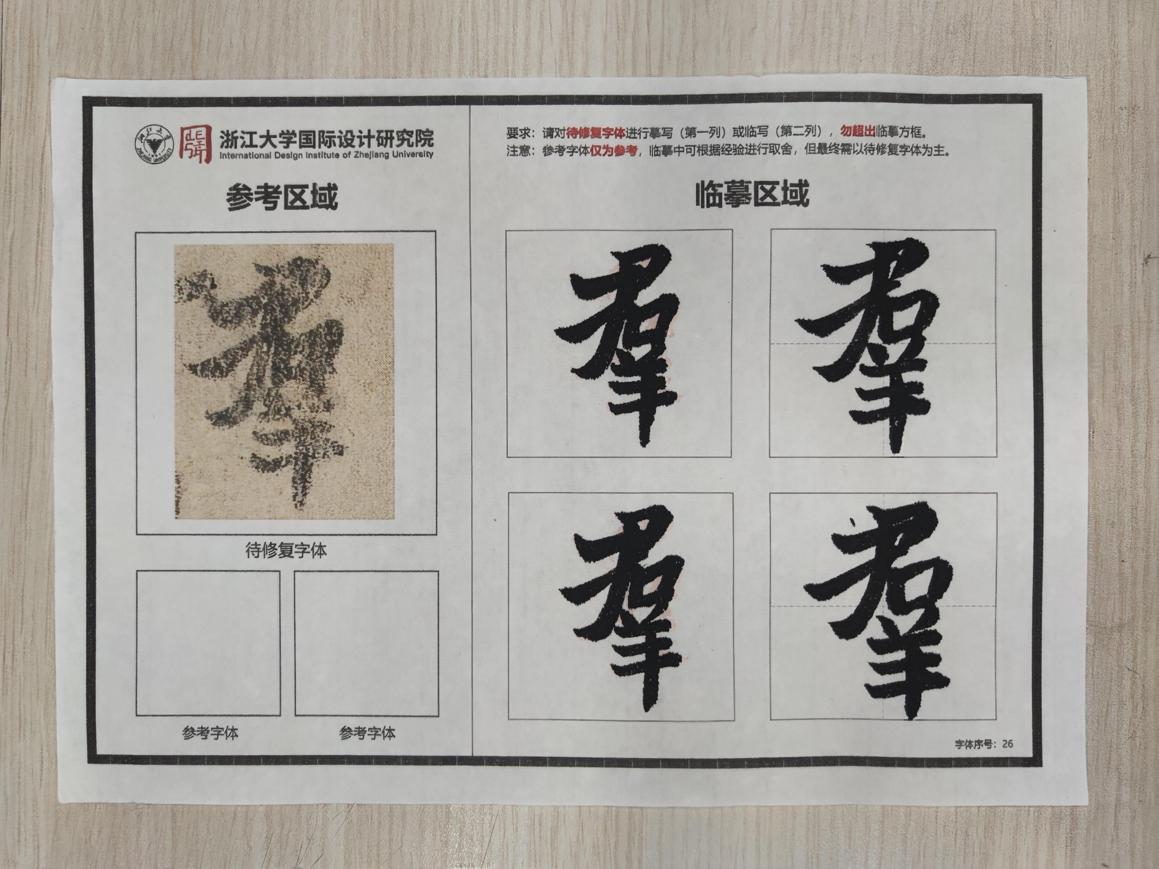 浙江大学国际设计研究院
International Design Institute of Zhejiang University
参考区域
羣
待修复字体
参考字体
参考字体
要求：请对待修复字体进行摹写（第一列）或临写（第二列），勿超出临摹方框。
注意：参考字体仅为参考，临摹中可根据经验进行取舍，但最终需以待修复字体为主。
临摹区域
羣
羣
羣
羣
字体序号：26